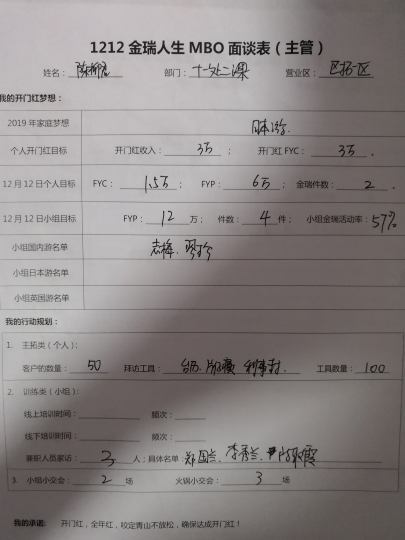 1212 金瑞人生 MBO 面谈表（主管）
姓名： 部门：十一处二课 营业区：区拓一区
我的开门红梦想：
2019 年家庭梦想 日本游
个人开门红目标 开门红收入：3万； 开门红 FYC：3万．
12 月 12 日个人目标 FYC：1.5万； FYP：6万； 金瑞件数：2．
12 月 12 日小组目标 FYP：12万； 件数：4件； 小组金瑞活动率：57%
小组国内游名单 志梅、
小组日本游名单
小组英国游名单
我的行动规划：
1. 主拓类（个人）：
客户的数量：50 拜访工具：台历、 利事封 工具数量：100
2. 训练类（小组）：
线上培训时间： 频次：
线下培训时间： 频次：
兼职人员家访：3人；具体名单 郑国兰、李秀兰、
3. 小组小交会：2场 火锅小交会：3场
我的承诺： 开门红，全年红，咬定青山不放松，确保达成开门红！